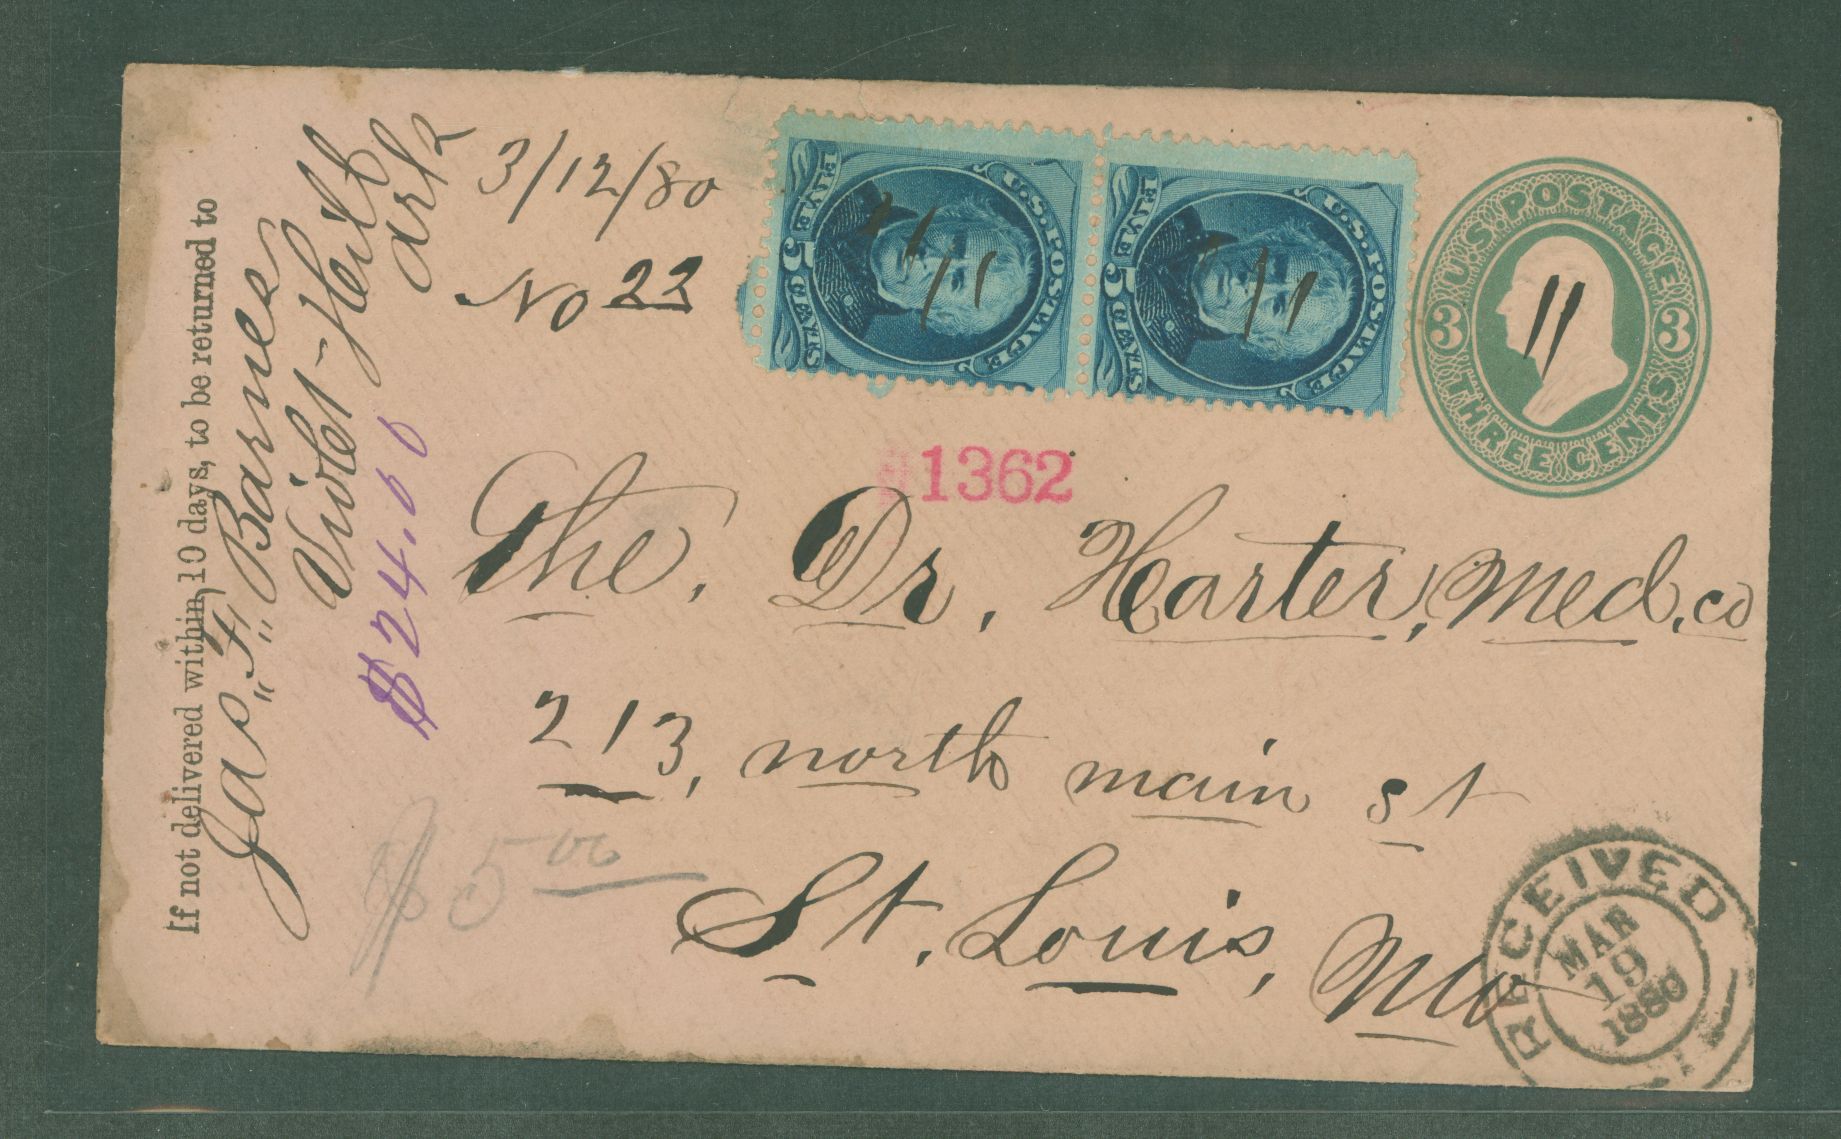 If not delivered within 10 days, to be returned to
Jas "F" Barnes
Violet-Hill
Ark
$24.00
3/12/80
No 23
U.S. POSTAGE
FIVE 5 CENTS
U.S. POSTAGE
FIVE 5 CENTS
U.S. POSTAGE
3 3
THREE CENTS
1362
The. Dr. Harter, Med. co
213, north main st
St. Louis, Mo
$ 5 00
RECEIVED
MAR
19
1880